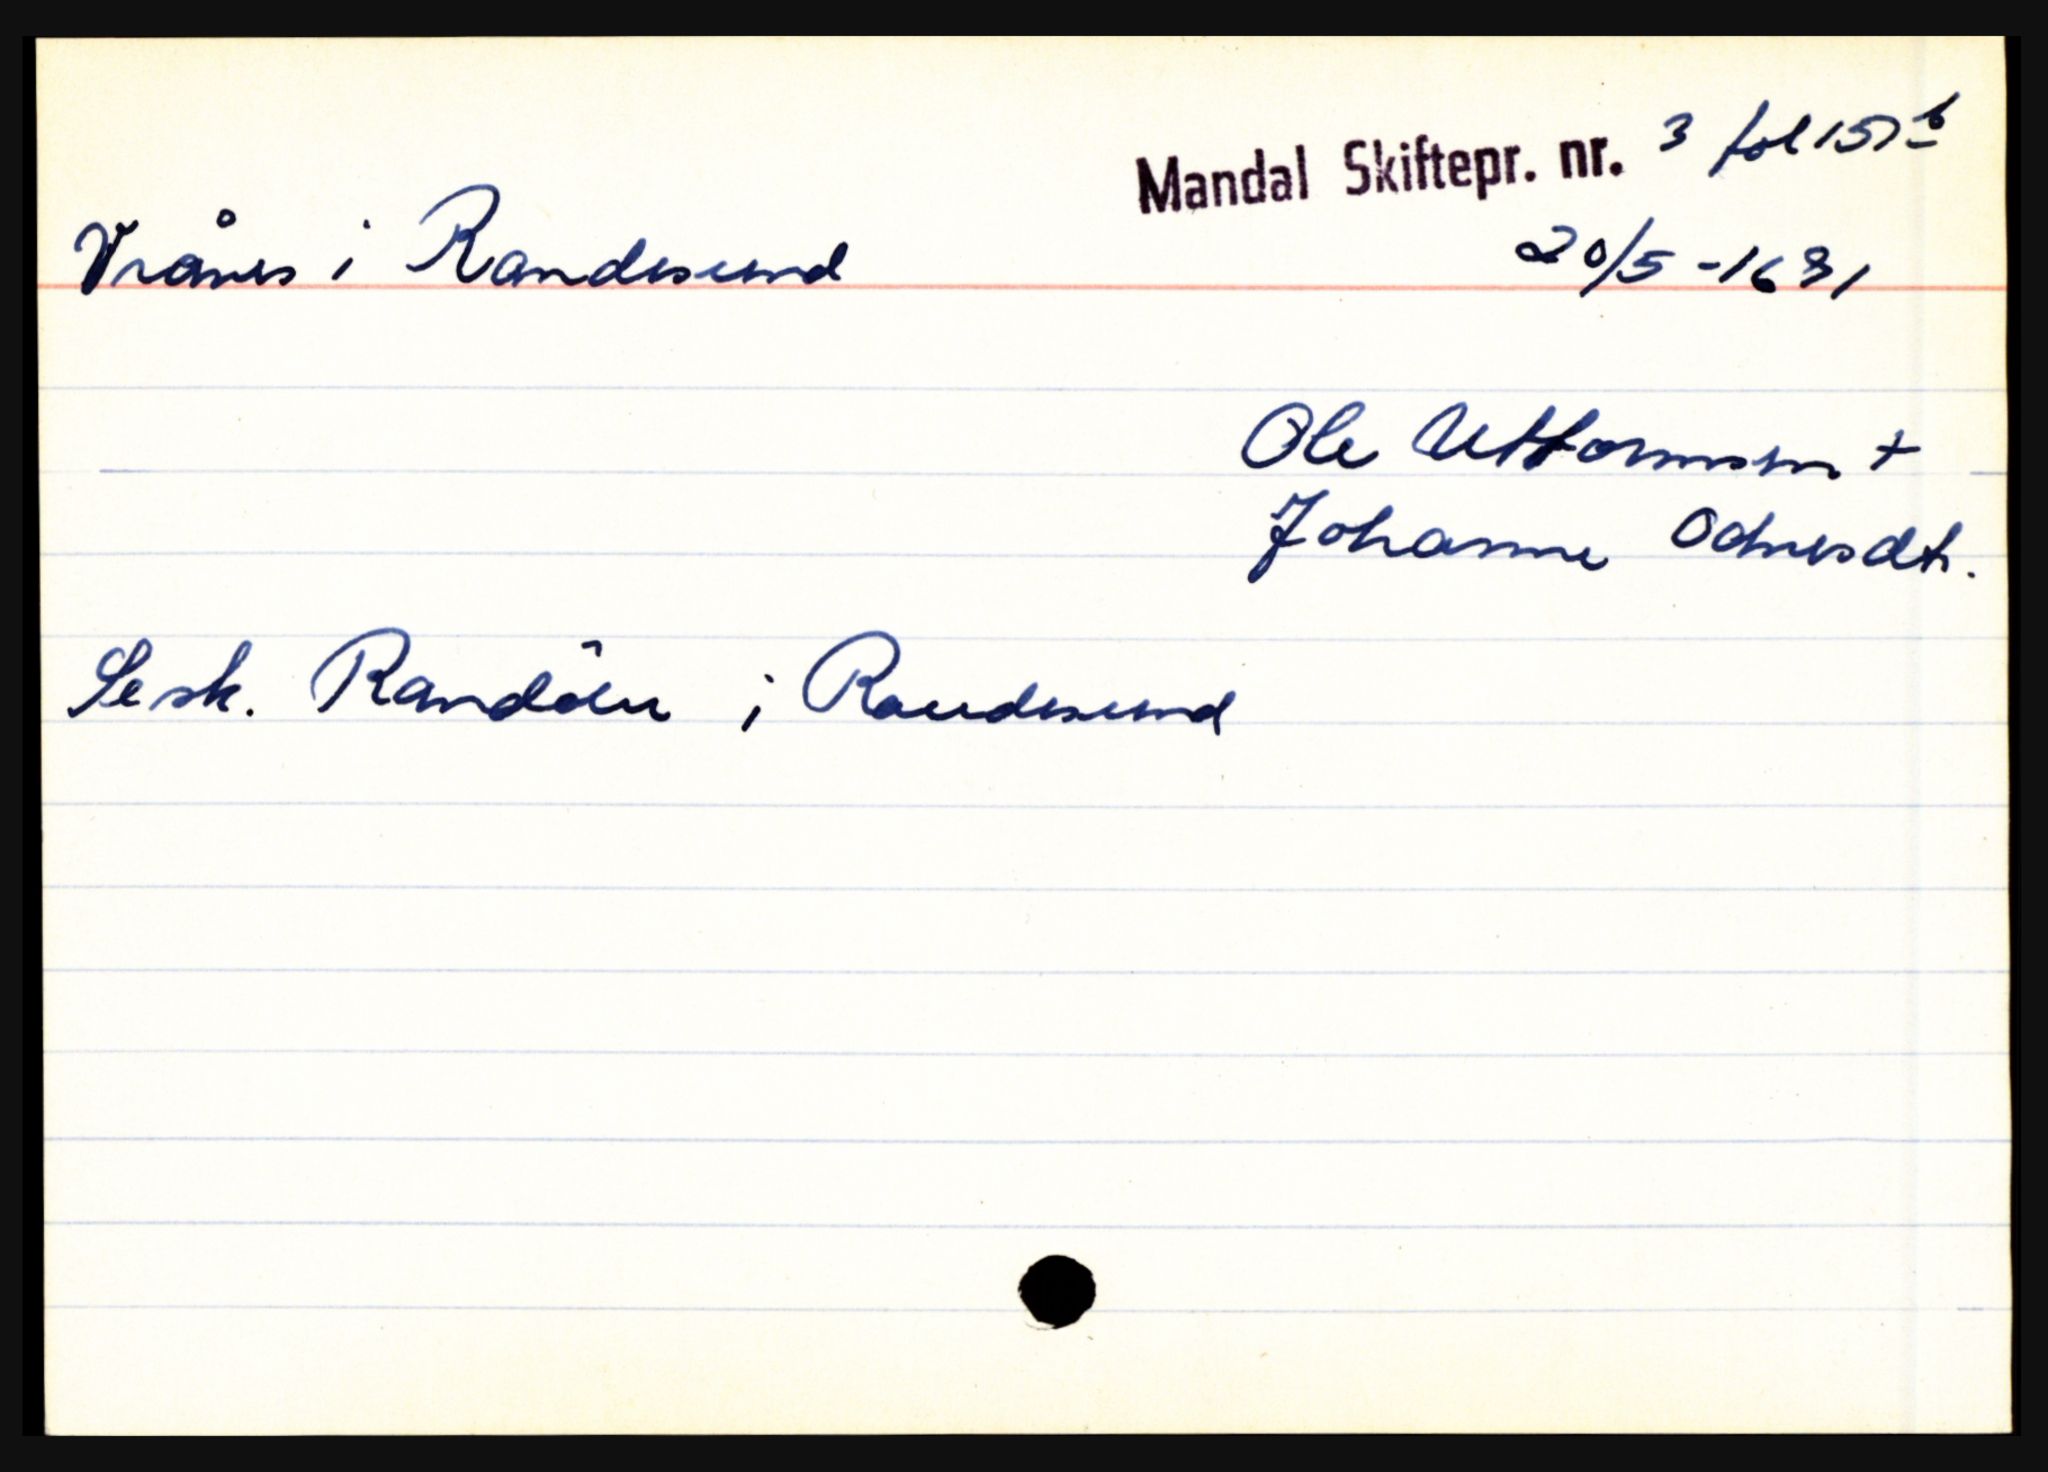 Mandal Skiftepr. nr. 3 fol 157 b
Vrånes i Randesund 20/5 - 1691
Ole Uttormsen +
Johanne Odnesdtr.
Se sk. Randöen i Randesund